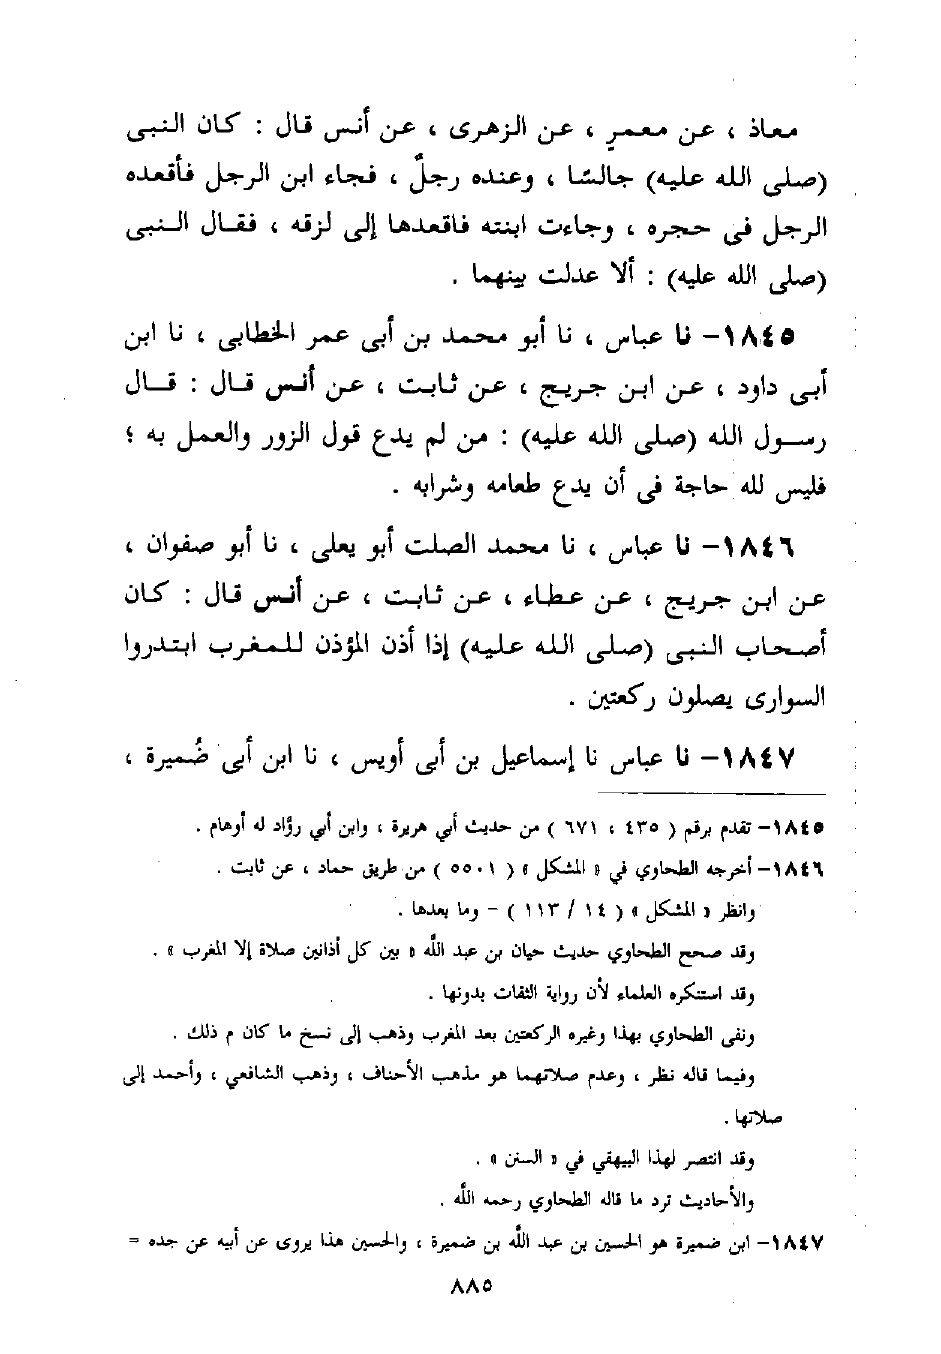 معاذ ، عن معمرٍ ، عن الزهرى ، عن أنس قال : كان النبى
(صلى الله عليه) جالسًا ، وعنده رجلٌ ، فجاء ابن الرجل فأقعده
الرجل فى حجره ، وجاءت ابنته فاقعدها إلى لزقه ، فقال النبى
(صلى الله عليه) : ألا عدلت بينهما .
١٨٤٥- نا عباس ، نا أبو محمد بن أبى عمر الخطابى ، نا ابن
أبى داود ، عن ابن جريج ، عن ثابت ، عن أنس قال : قال
رسول الله (صلى الله عليه) : من لم يدع قول الزور والعمل به ؛
فليس لله حاجة فى أن يدع طعامه وشرابه .
١٨٤٦- نا عباس ، نا محمد الصلت أبو يعلى ، نا أبو صفوان ،
عن ابن جريج ، عن عطاء ، عن ثابت ، عن أنس قال : كان
أصحاب النبى (صلى الله عليه) إذا أذن المؤذن للمغرب ابتدروا
السوارى يصلون ركعتين .
١٨٤٧- نا عباس نا إسماعيل بن أبى أويس ، نا ابن أبى ضُميرة ،
١٨٤٥- تقدم برقم ( ٤٣٥ ، ٦٧١ ) من حديث أبي هريرة ، وابن أبي رؤاد له أوهام .
١٨٤٦- أخرجه الطحاوي في « المشكل » ( ٥٥٠١ ) من طريق حماد ، عن ثابت .
وانظر « المشكل » ( ١٤ / ١١٣ ) - وما بعدها .
وقد صحح الطحاوي حديث حيان بن عبد الله « بين كل أذانين صلاة إلا المغرب » .
وقد استنكره العلماء لأن رواية الثقات بدونها .
ونفى الطحاوي بهذا وغيره الركعتين بعد المغرب وذهب إلى نسخ ما كان م ذلك .
وفيما قاله نظر ، وعدم صلاتهما هو مذهب الأحناف ، وذهب الشافعي ، وأحمد إلى
صلاتها .
وقد انتصر لهذا البيهقي في « السنن » .
والأحاديث ترد ما قاله الطحاوي رحمه الله .
١٨٤٧- ابن ضميرة هو الحسين بن عبد الله بن ضميرة ، والحسين هذا يروى عن أبيه عن جده =
٨٨٥